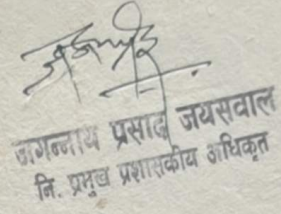 जगन्नाथ प्रसाद जयसवाल
नि. प्रमुख प्रशासकीय अधिकृत